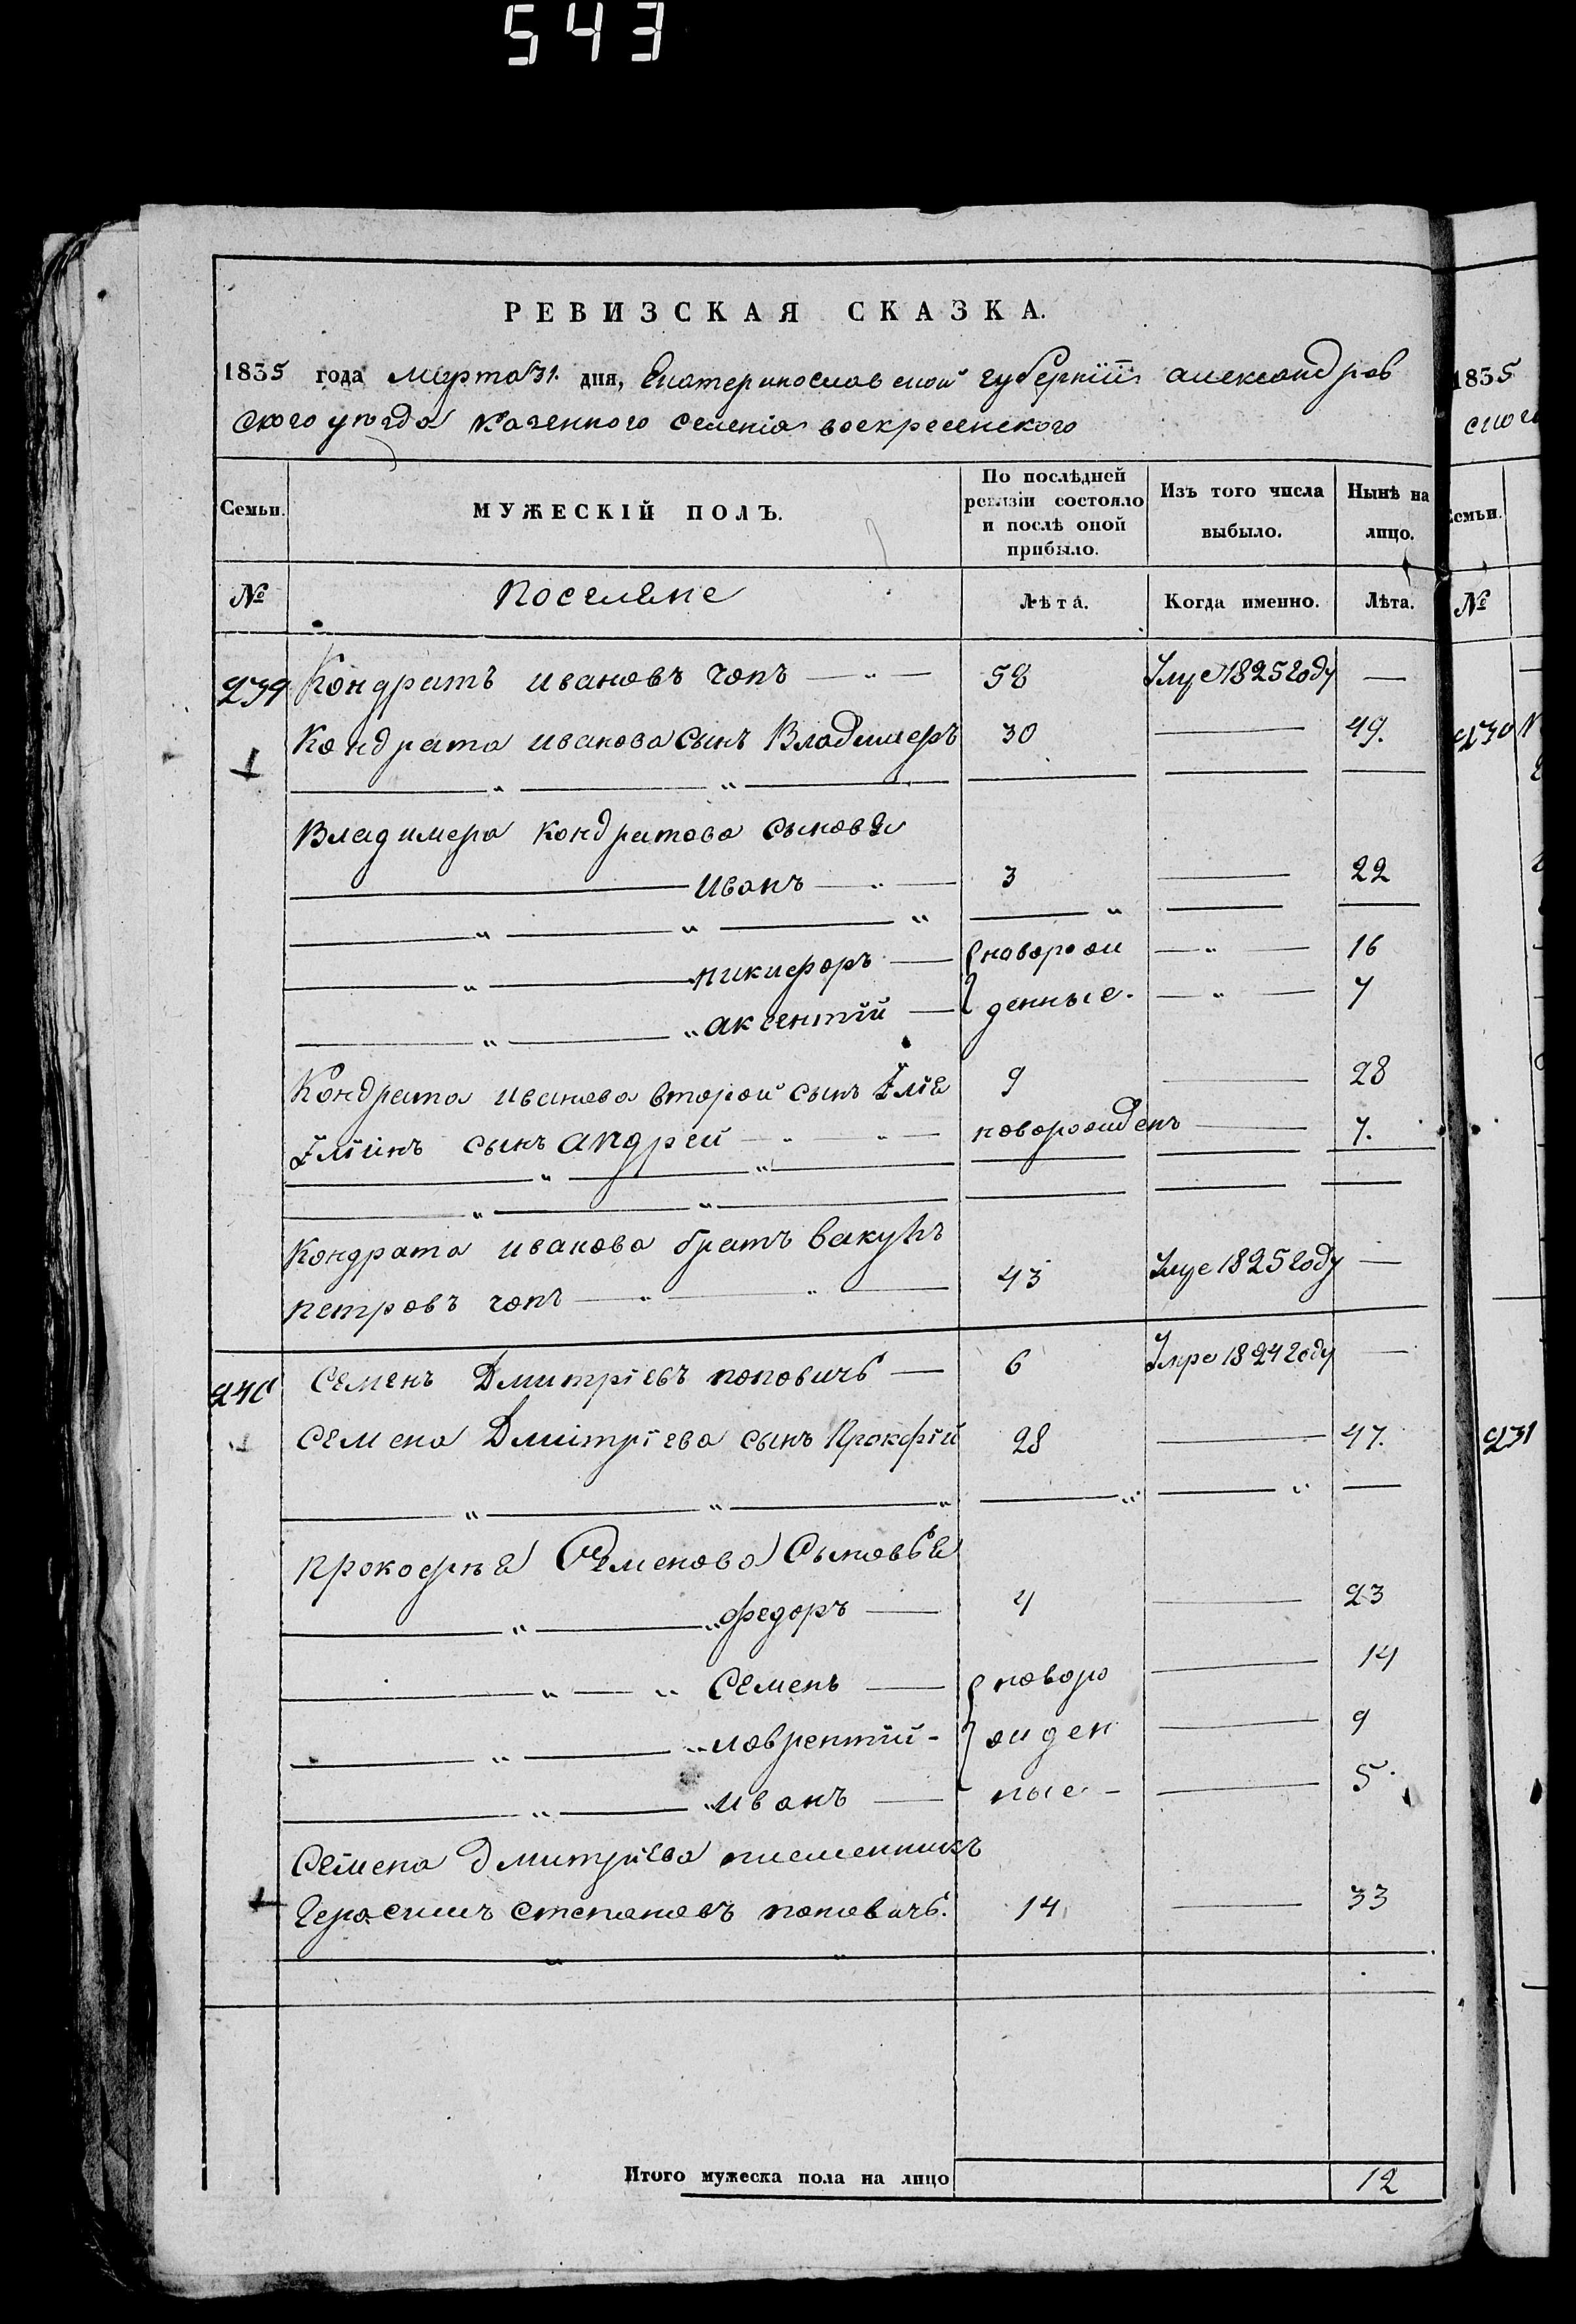 543
РЕВИЗСКАЯ СКАЗКА.
1835 года марта 31. дня, Екатеринославской губернїи александров
ского уезда Казенного селенїя воскресенского
Семьи. МУЖЕСКІЙ ПОЛЪ. По послѣдней ревизіи состояло и послѣ оной прибыло. Изъ того числа выбыло. Нынѣ на лицо.
№ Поселяне Лѣта. Когда именно. Лѣта.
239 Кондратъ ивановъ чопъ 58 Уме 1825 году —
Кондрата иванова сынъ Владимеръ 30 — 49.
Владимера кондратова сыновя
иванъ 3 — 22
никифоръ новорож — 16
аксентїй денные. — 7
Кондрата иванова второй сынъ Илїя 9 — 28
Илїинъ сынъ андрей новорожденъ — 7.
Кондрата иванова братъ вакулъ
петровъ чопъ 43 Уме 1825 году —
240 Семенъ Дмитрїевъ поповичь 6 1824 году —
Семена Дмитрїева сынъ Прокофїй 28 — 47.
прокофья Семенова Сыновья
федоръ 4 — 23
Семенъ новоро — 14
лаврентїй жден — 9
иванъ ные — 5.
Семена дмитрїева племенникъ
Герасимъ степановъ поповичь. 14 — 33
Итого мужеска пола на лицо 12
1835
Семьи.
№
230
231